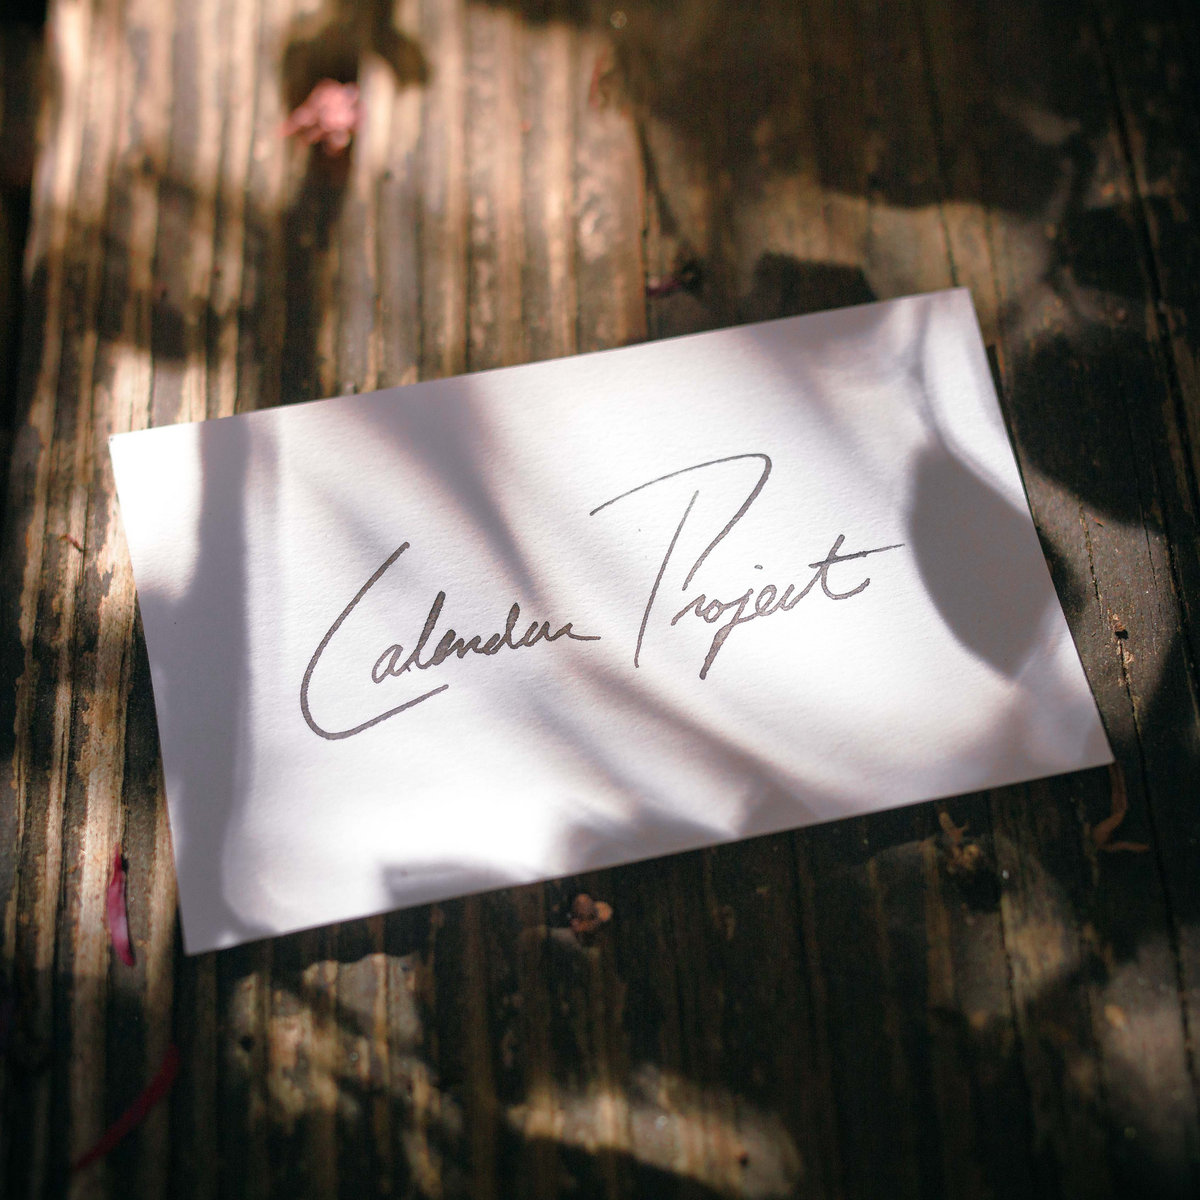 Calendar Project